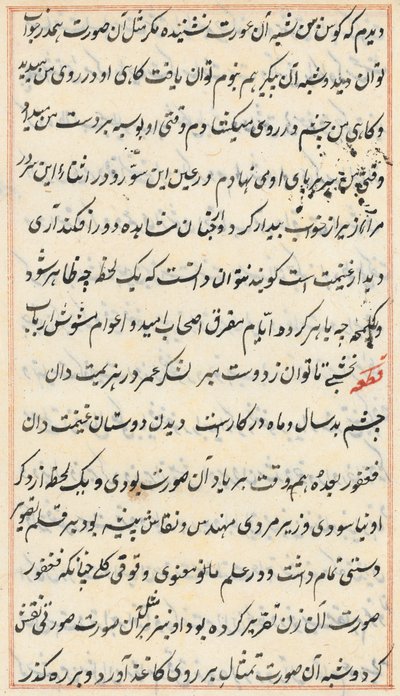 دیدم که گوش من شبه آن عورت نشنیده مگر مثل آن صورت همه در خواب
توان دید و شبه آن پیکر هم بنوم توان یافت گاهی او در روی من میدید
و گاهی من چشم در روی میکشادم وقتی او بوسه بر دست من میداد
وقتی من سر بر پای او می نهادم در عین این سور و در اثناء این سرور
مرا از خواب بیدار کرد و از چنان مشاهده دور افکند آری
دیدار غنیمت است که بدین نتوان دانست که یک لحظه چه ظاهر شود
و چه باهر کرده ایام مفرق اصحاب امید و اعوام مشوش ارباب
قطعه
نخشبی تا توان ز دوست مبر لشکر عمر در هزیمت دان
چشم بد سال و ماه در کارست دیدن دوستان غنیمت دان
فغفور بعده همه وقت بر یاد آن صورت بودی و یک لحظه از ذکر
او نیاسودی وزیر مردی مهندس و نقاش پیشه بود بر قلم تصویر
دستی تمام داشت و در علم مانوی معنوی وقوفی کلی چنانکه فغفور
صورت آن زن تقریر کرده بود او نیز بر مثل آن صورت صورتی نقش
کرد و شبه آن صورت تمثال بر روی کاغذ آورد و بر ره گذر